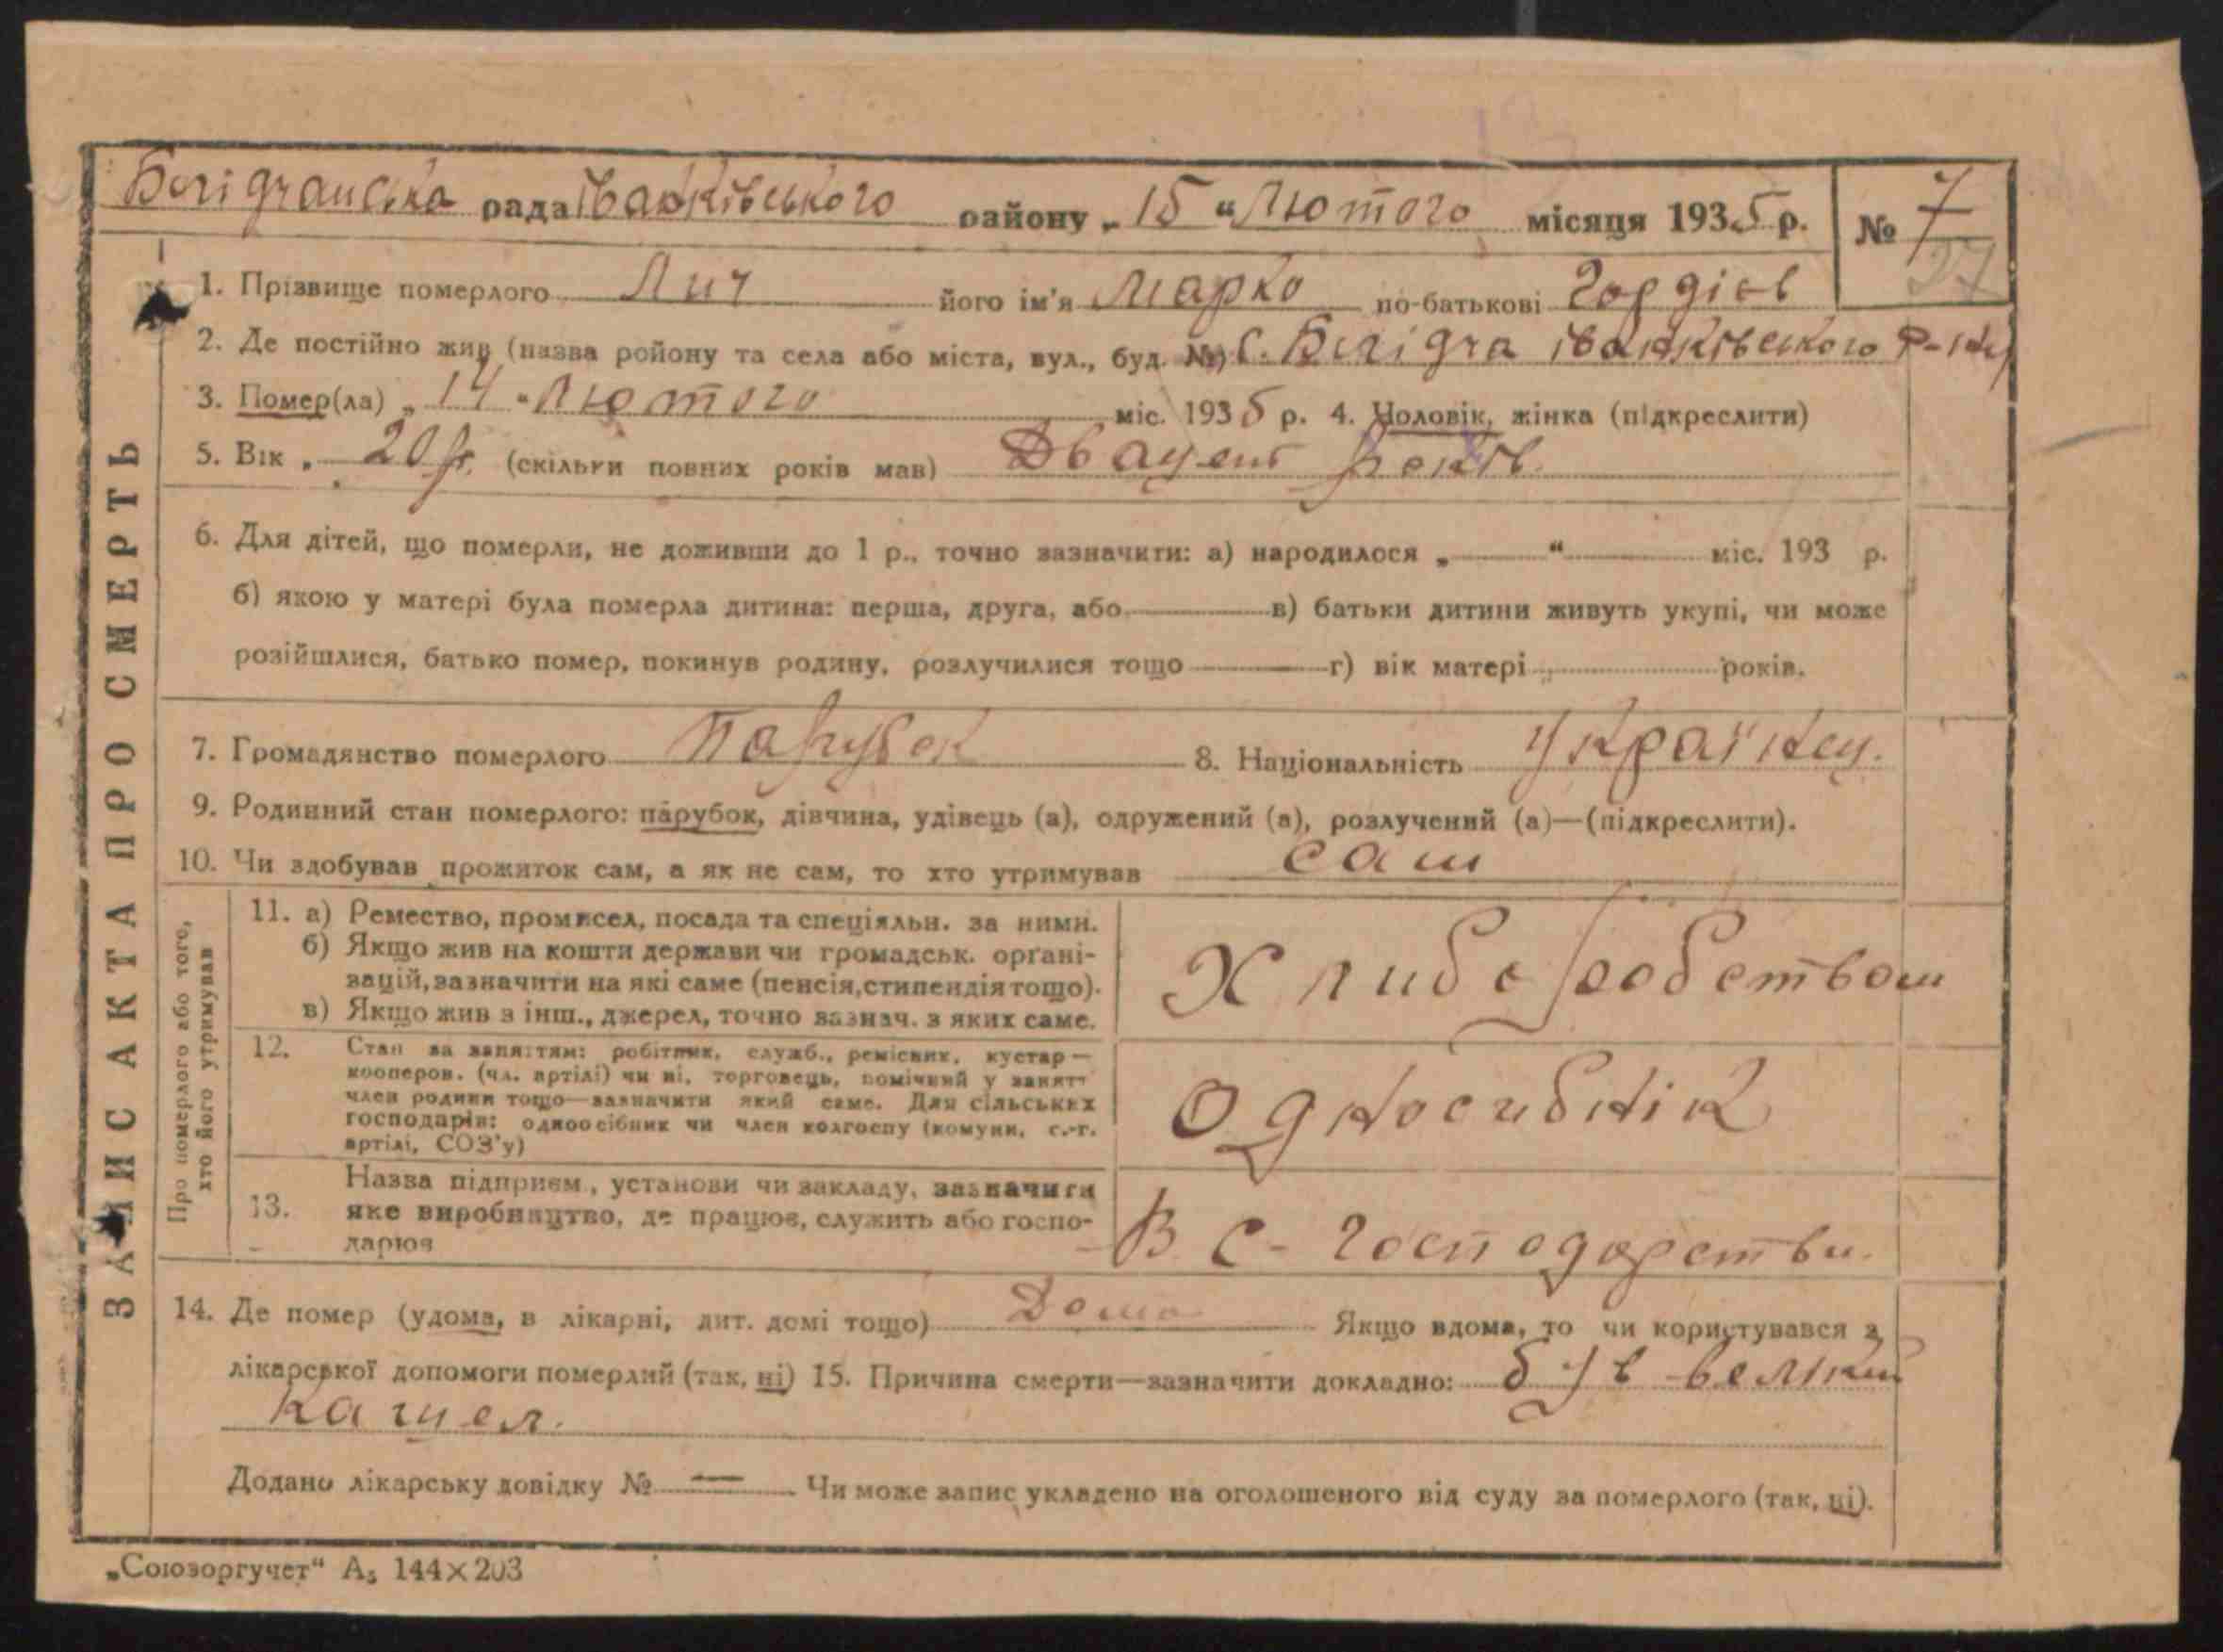 рада Іванківського району „ 15 “ Лютого місяця 1935 р. № 7
27
1. Прізвище померлого Лич його ім'я Марко по-батькові Гордієв
2. Де постійно жив (назва ройону та села або міста, вул., буд. №) С. Іванківського Р-ну
3. Помер(ла) „ 14 “ Лютого міс. 1935 р. 4. Чоловік, жінка (підкреслити)
5. Вік „ 20 р. (скільки повних років мав) Двацет років
6. Для дітей, що померли, не доживши до 1 р., точно зазначити: а) народилося „ — “ — міс. 193 р.
б) якою у матері була померла дитина: перша, друга, або — в) батьки дитини живуть укупі, чи може
розійшлися, батько помер, покинув родину, розлучилися тощо — г) вік матері років.
7. Громадянство померлого Парубок 8. Національність Українец.
9. Родинний стан померлого: парубок, дівчина, удівець (а), одружений (а), розлучений (а)—(підкреслити).
10. Чи здобував прожиток сам, а як не сам, то хто утримував сам
ЗАПИС АКТА ПРО СМЕРТЬ
Про померлого або того,
хто його утримував
11. а) Ремество, промисел, посада та спеціяльн. за ними.
б) Якщо жив на кошти держави чи громадськ. орґані-
зацій, зазначити на які саме (пенсія, стипендія тощо).
в) Якщо жив з інш., джерел, точно вазнач. з яких саме.
Хлиборобством
12. Стан за заняттям: робітник, служб., ремісник, кустар —
кооперов. (чл. артілі) чи ні, торговець, помічний у занятт
член родини тощо—зазначити який саме. Для сільських
господарів: одноосібник чи член колгоспу (комуни, с.-г.
артілі, СОЗ'у)
Односибнік
13. Назва підприєм., установи чи закладу, зазначити
яке виробництво, де працює, служить або госпо-
дарює
В с- господарстви.
14. Де помер (удома, в лікарні, дит. домі тощо) Дома Якщо вдома, то чи користувався з
лікарської допомоги померлий (так, ні) 15. Причина смерти—зазначити докладно: був велики
кашел.
Додано лікарську довідку № — Чи може запис укладено на оголошеного від суду за померлого (так, ні).
„Союзоргучет“ А₅ 144×203